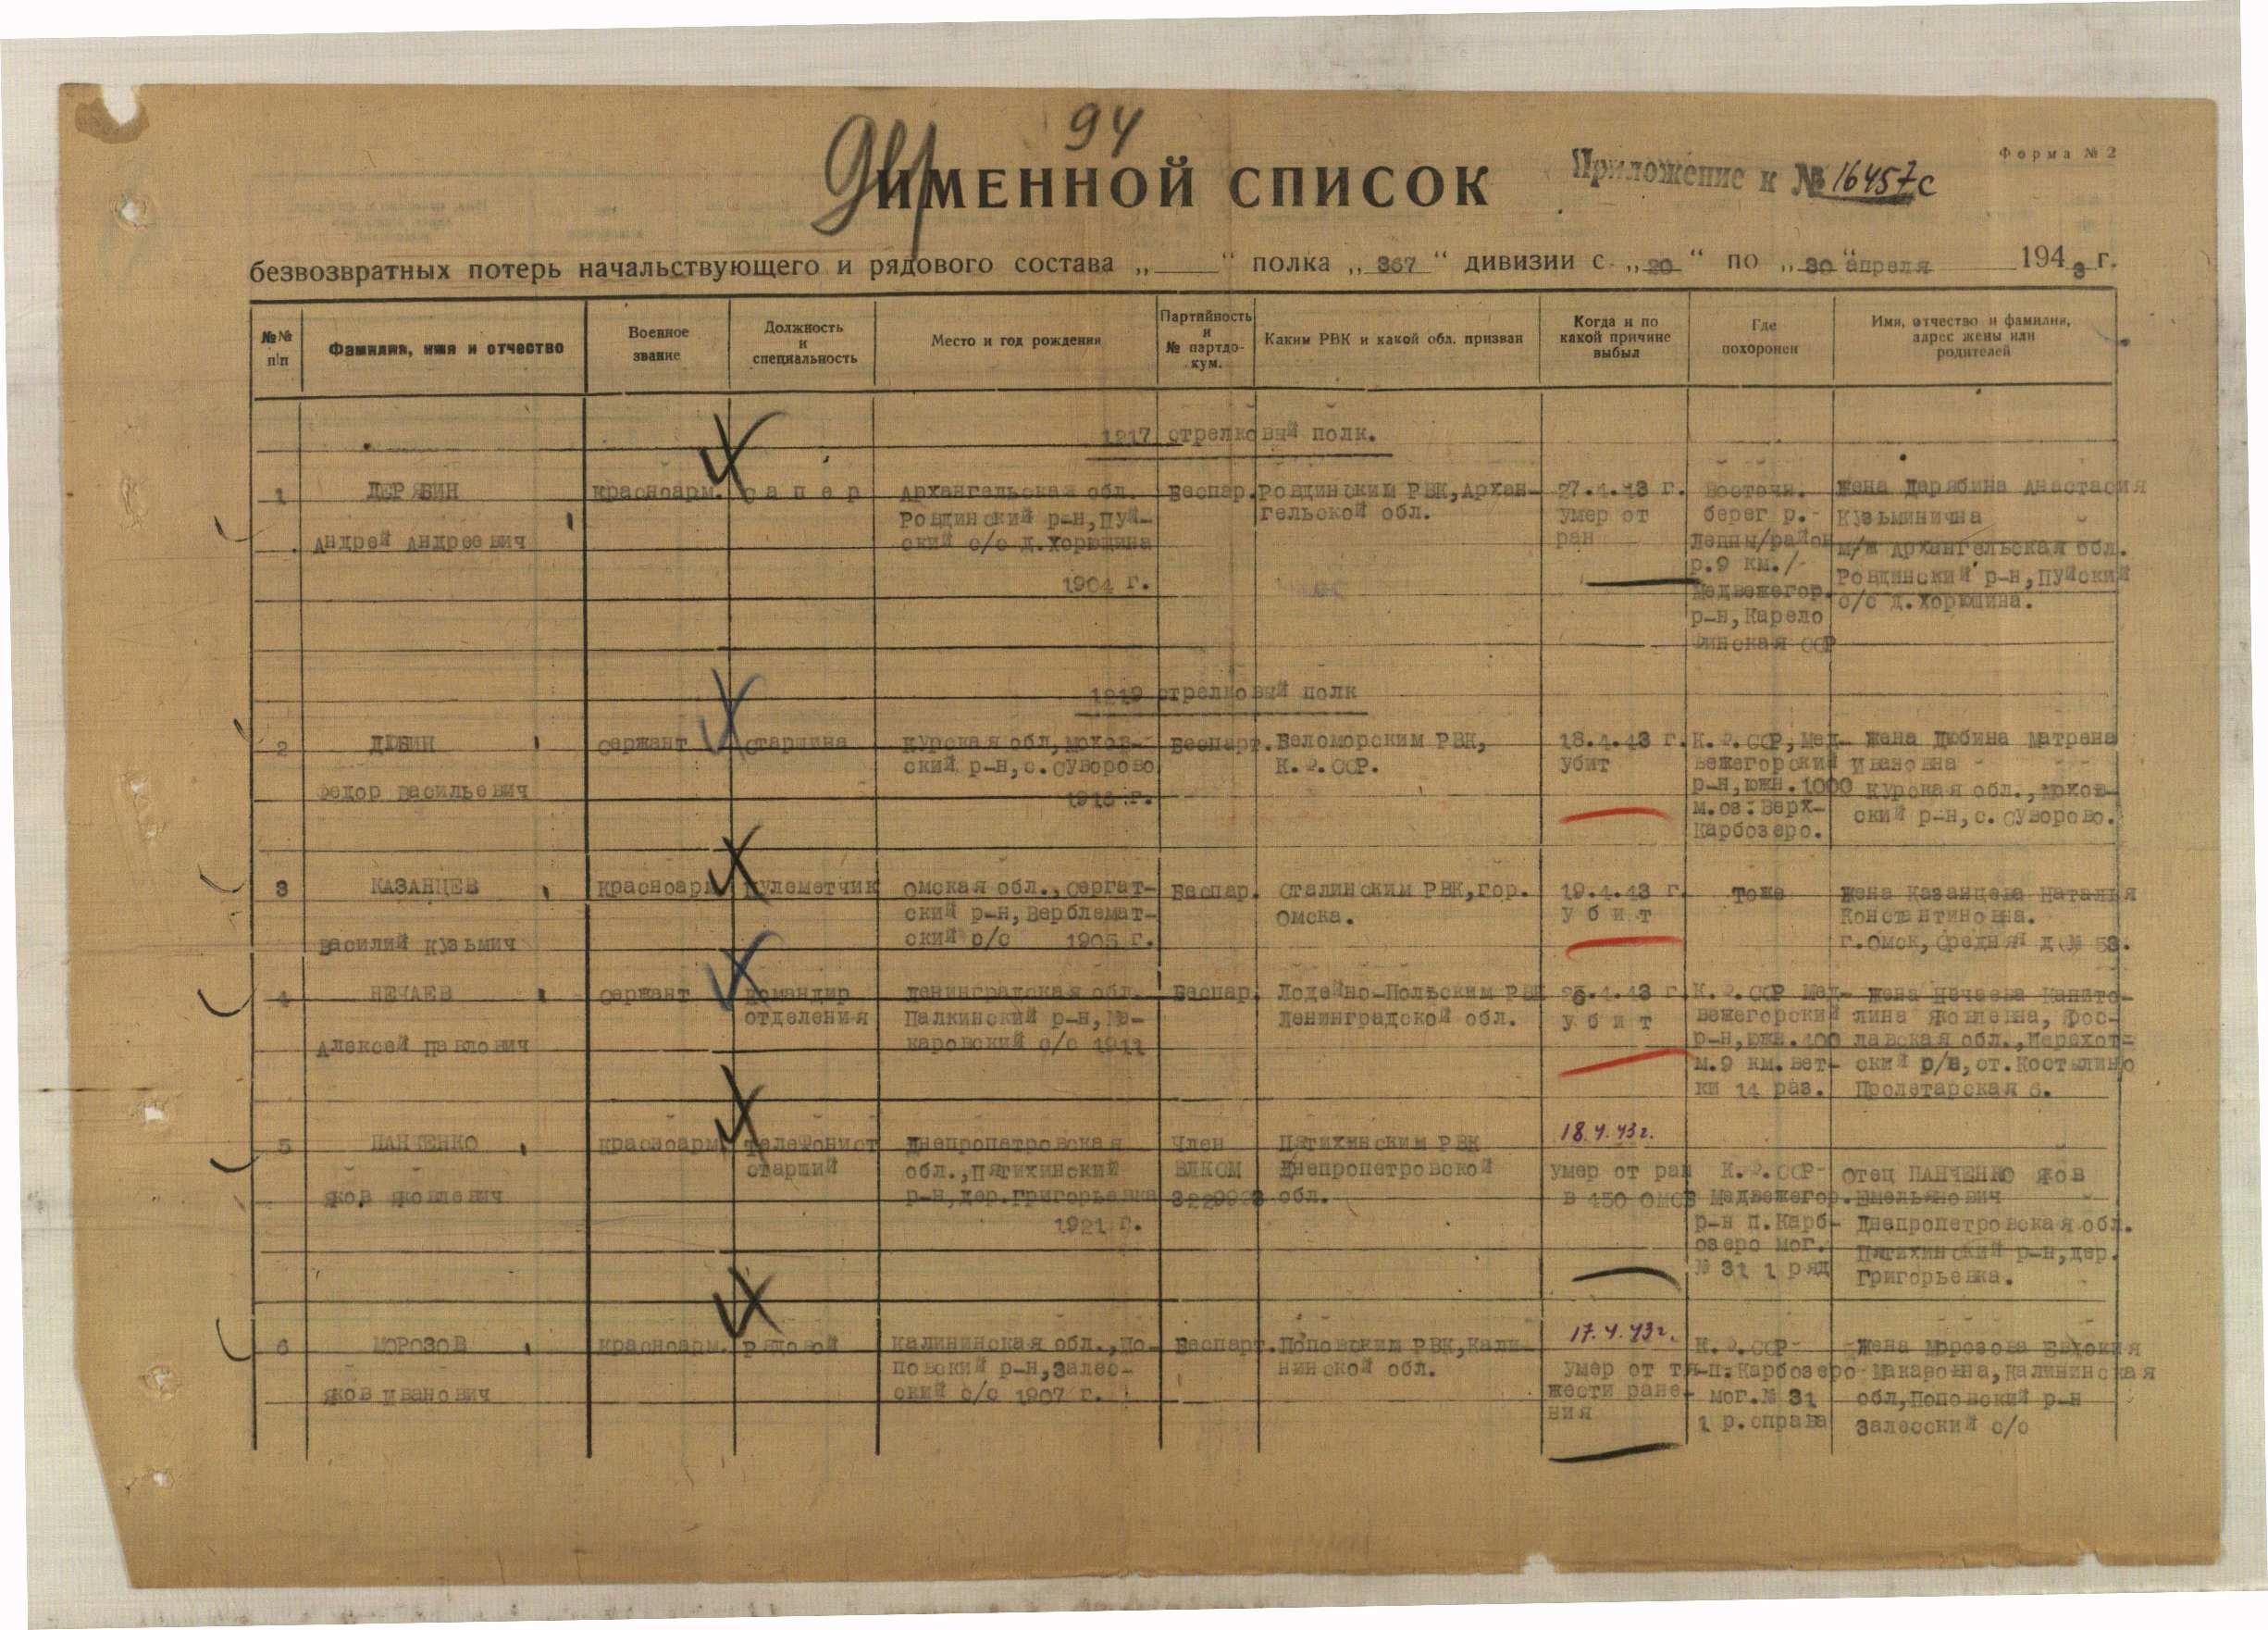 94
ИМЕННОЙ СПИСОК
Приложение к № 16457с
Форма № 2
безвозвратных потерь начальствующего и рядового состава „ “ полка „ 367 “ дивизии с „ 20 “ по „ 30 “ апреля 1943 г.
№№ п/п
Фамилия, имя и отчество
Военное звание
Должность и специальность
Место и год рождения
Партийность и № партдо-кум.
Каким РВК и какой обл. призван
Когда и по какой причине выбыл
Где похоронен
Имя, отчество и фамилия, адрес жены или родителей
1217 стрелковый полк.
1
ДЕРЯБИН
Андрей Андреевич
красноарм.
сапер
Архангельская обл.
Ровдинский р-н, Пуй-
ский с/с д. Хорюшина
1904 г.
Беспар.
Ровдинским РВК, Архан-
гельской обл.
27.4.43 г.
умер от
ран
Восточн.
берег р.
/район
р.9 км./
Медвежегор.
р-н, Карело
Финская ССР
жена Дерябина Анастасия
Кузьминична
м/ж Архангельская обл.
Ровдинский р-н, Пуйский
с/с д. Хорюшина.
1219 стрелковый полк
2
ДЮБИН
Федор Васильевич
сержант
старшина
Курская обл, Моков-
ский р-н, с. Суворово
Беспарт.
Беломорским РВК,
К.Ф.ССР.
18.4.43 г.
убит
К.Ф.ССР, Мед-
вежегорский
р-н, южн. 1000
м. оз. Верх-
Карбозеро.
жена Дюбина Матрена
Ивановна
Курская обл.,
ский р-н, с. Суворово.
3
КАЗАНЦЕВ
Василий Кузьмич
красноарм
пулеметчик
Омская обл., Сергат-
ский р-н, Верблемат-
ский р/с 1905 г.
Беспар.
Сталинским РВК, гор.
Омска.
19.4.43 г.
убит
Тоже
жена Казанцева Наталья
Константиновна.
г. Омск, Средняя д № 53.
4
НЕЧАЕВ
Алексей Павлович
сержант
командир
отделения
Ленинградская обл.
Палкинский р-н, Ма-
каровский с/с 1911
Беспар.
Лодейно-Польским РВК
Ленинградской обл.
25.4.43 г.
убит
К.Ф.ССР Мед-
вежегорский
р-н, южн. 400
м. 9 км. вет-
ки 14 раз.
жена Нечаева Капито-
лина Яковлевна, Ярос-
лавская обл., Нерехот-
ский р/в, ст. Костылино
Пролетарская 6.
5
ПАНЧЕНКО
Яков Яковлевич
красноарм.
телефонист
старший
Днепропетровская
обл., Пятихинский
р-н, дер. Григорьевка
1921 г.
Член
ВЛКСМ
Пятихинским РВК
Днепропетровской
обл.
18.4.43г.
умер от ран
в 450 ОМСБ
К.Ф.ССР
Медвежегор.
р-н п. Карб-
озеро мог.
№ 31 1 ряд
Отец ПАНЧЕНКО Яков
Емельянович
Днепропетровская обл.
Пятихинский р-н, дер.
Григорьевка.
6
МОРОЗОВ
Яков Иванович
красноарм.
рядовой
Калининская обл., По-
повский р-н, Залес-
ский с/с 1907 г.
Беспарт.
Поповским РВК, Кали-
нинской обл.
17.4.43г.
умер от тя-
жести ране-
ния
К.Ф.ССР-
п. Карбозеро
мог. № 31
1 р. справа
жена Морозова Евдокия
Макаровна, Калининская
обл, Поповский р-н
Залесский с/с